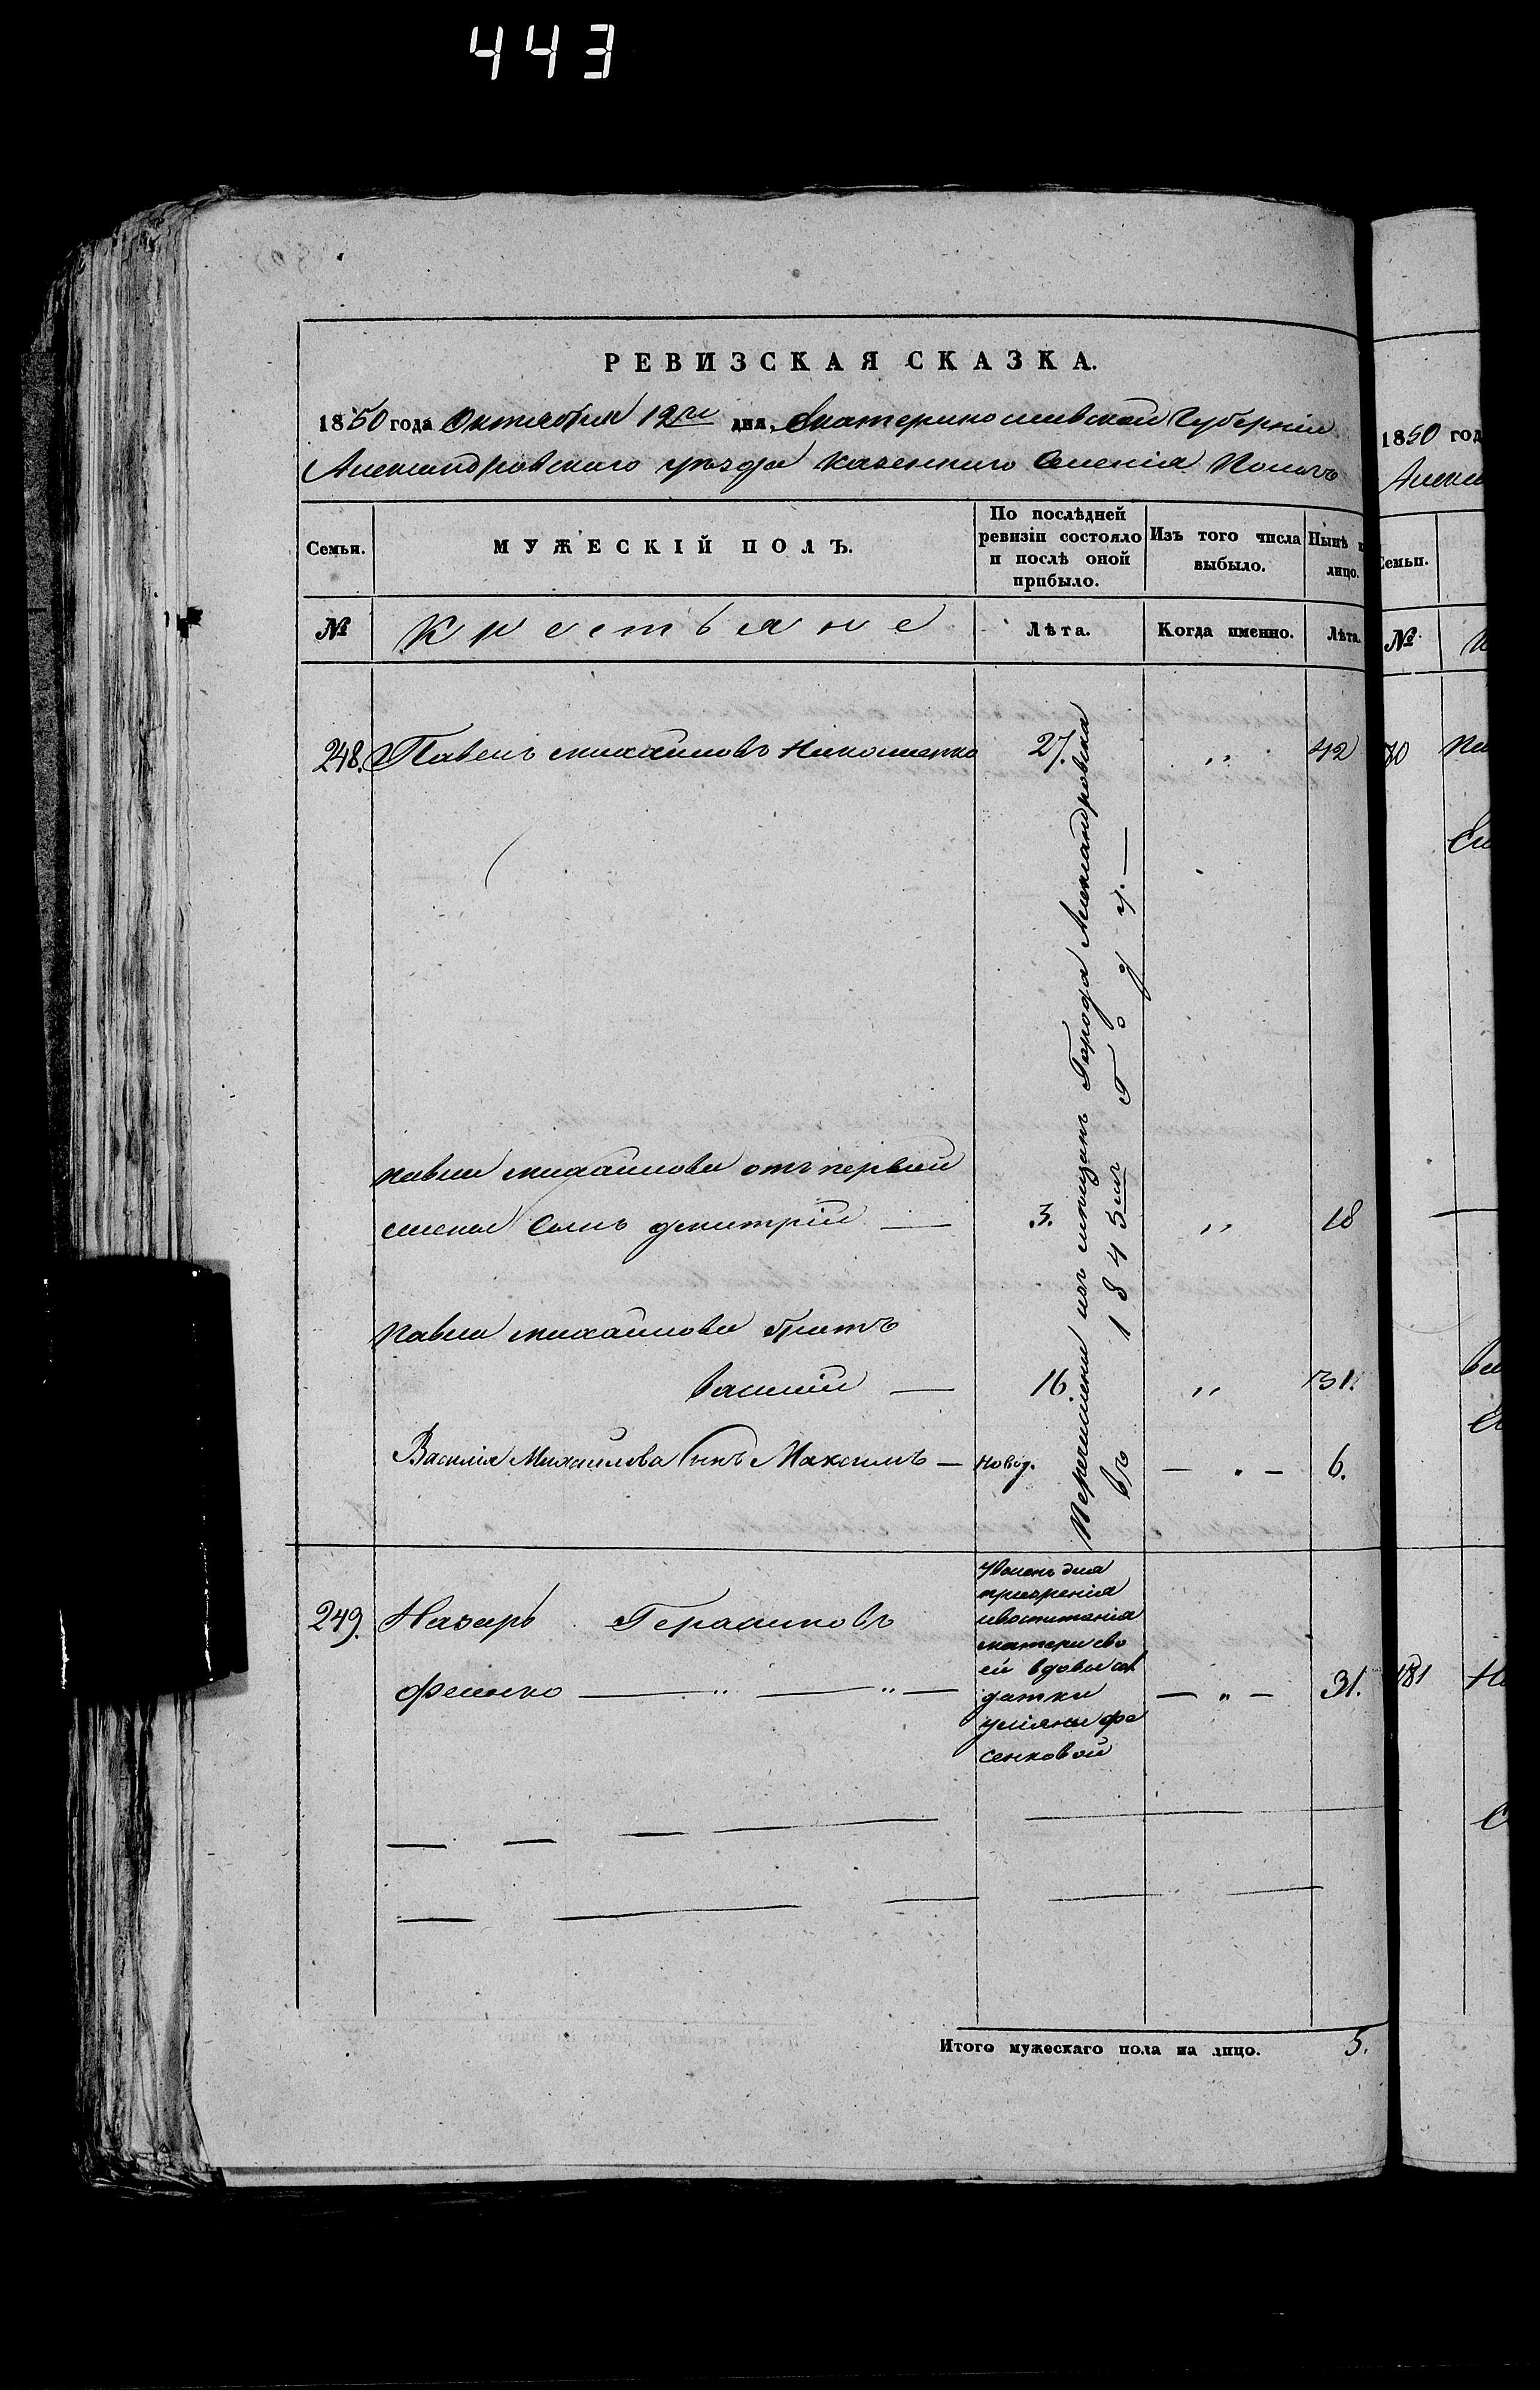 443
РЕВИЗСКАЯ СКАЗКА.
1850 года Октября 12го дня, Екатеринославской Губерніи
Александровского уѣзда казенного Селенія Конскъ
Семьи.
МУЖЕСКІЙ ПОЛЪ.
По послѣдней ревизіи состояло и послѣ оной прибыло.
Изъ того числа выбыло.
Нынѣ
лицо.
№
Крестьяне
Лѣта.
Когда именно.
Лѣта.
248. Павелъ михайловъ Николаенко 27. ,, 42
Павла михайлова отъ первой
жены Сынъ дмитрій — 3. ,, 18
Павла михайлова братъ
василій — 16 ,, 31.
Василія Михайлова Сынъ Максимъ — новор. — . — 6.
Перечислены изъ мещанъ Города Александровска
въ 1845мъ Году. —
249. Назаръ Герасимовъ
Фесенко — ,, — ,, — — „ — 31.
Уволенъ для
призренія
ивоспитанія
матери сво
ей вдовы сол
датки
уліяны фе
сенковой
Итого мужескаго пола на лицо. 5.
1850 год
Алекс
Семьи.
№
181